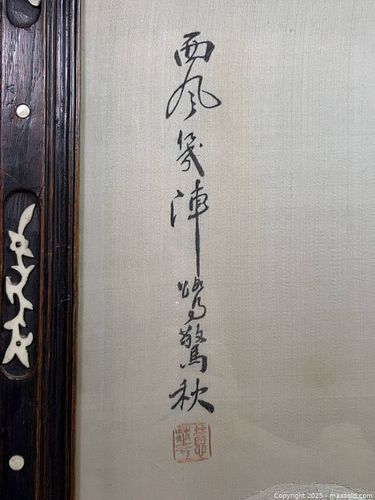 西風幾陣鶯驚秋
Copyright 2025 - maxsold.com